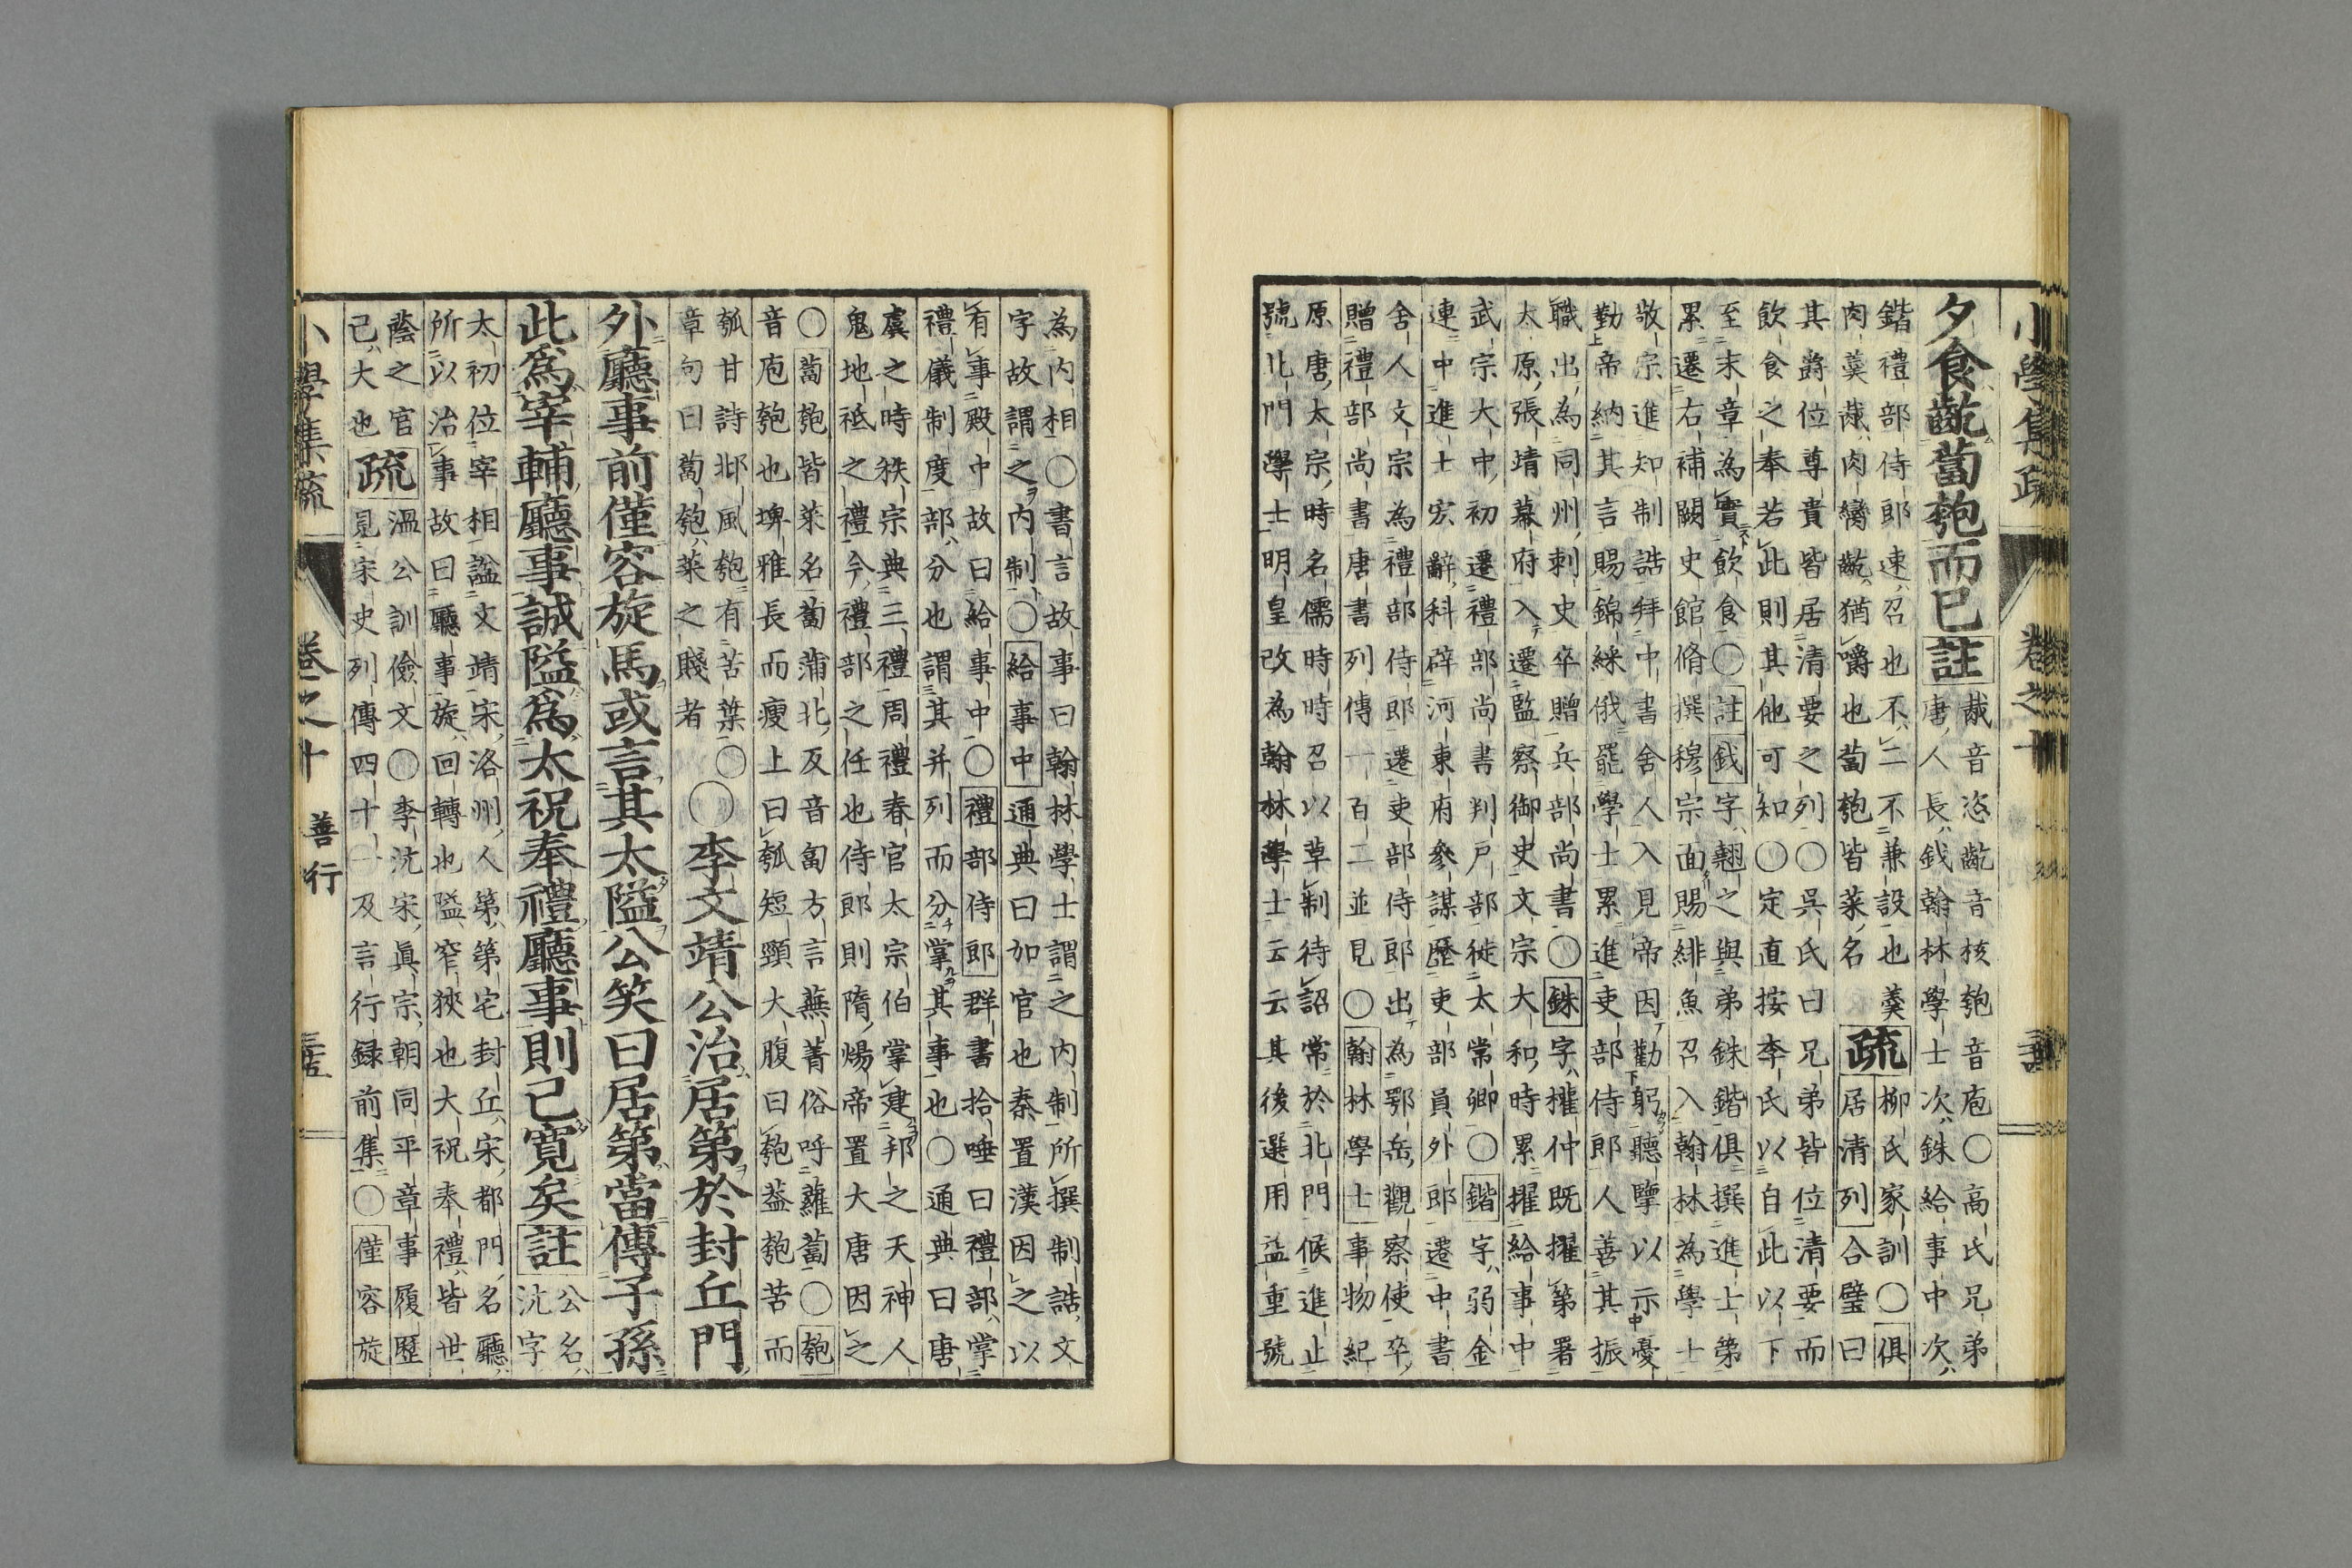 小學集疏 卷之十
夕食齕蔔匏而已註
胾音恣齕音核匏音庖○高氏兄弟
唐人長鉞翰林學士次銖給事中次
鍇禮部侍郎速召也不二不兼設也羹
肉羹胾肉臠齕猶嚼也蔔匏皆菜名
疏
柳氏家訓○俱
居清列合璧曰
其爵位尊貴皆居清要之列○呉氏曰兄弟皆位清要而
飲食之奉若此則其他可知○定直按李氏以自此以下
至末章為實飲食○註鉞字翹之與弟銖鍇俱撰進士第
累遷右補闕史館脩撰穆宗面賜緋魚召入翰林為學士
敬宗進知制誥拜中書舍人入見帝因勸躬聽擥以示憂
勤帝納其言賜錦綵俄罷學士累進吏部侍郎人善其振
職出為同州刺史卒贈兵部尚書○銖字權仲既擢第署
太原張靖幕府入遷監察御史文宗大和時累擢給事中
武宗大中初遷禮部尚書判戸部徙太常卿○鍇字弱金
連中進士宏辭科辟河東府參謀歴吏部員外郎遷中書
舍人文宗為禮部侍郎遷吏部侍郎出為鄂岳觀察使卒
贈禮部尚書唐書列傳一百二並見○翰林學士事物紀
原唐太宗時名儒時時召以草制待詔常於北門候進止
號北門學士明皇改為翰林學士云云其後選用益重號
為内相○書言故事曰翰林學士謂之内制所撰制誥文
字故謂之内制○給事中通典曰加官也秦置漢因之以
有事殿中故曰給事中○禮部侍郎群書拾唾曰禮部掌
禮儀制度部分也謂其并列而分掌其事也○通典曰唐
虞之時秩宗典三禮周禮春官太宗伯掌建邦之天神人
鬼地祗之禮今禮部之任也侍郎則隋煬帝置大唐因之
○蔔匏皆菜名蔔蒲北反音匐方言蕪菁俗呼蘿蔔○匏
音庖匏也埤雅長而瘦上曰瓠短頸大腹曰匏葢匏苦而
瓠甘詩邶風匏有苦葉○
章句曰蔔匏菜之賤者
○李文靖公治居第於封丘門
外廳事前僅容旋馬或言其太隘公笑曰居第當傳子孫
此爲宰輔廳事誠隘爲太祝奉禮廳事則已寛矣註
公名
沆字
太初位宰相謚文靖宋洛州人第第宅封丘宋都門名廳
所以治事故曰廳事旋回轉也隘窄狹也大祝奉禮皆世
蔭之官溫公訓儉文○李沆宋眞宗朝同平章事履歷
已大也疏見宋史列傳四十一及言行録前集○僅容旋
小學集疏 卷之十 善行